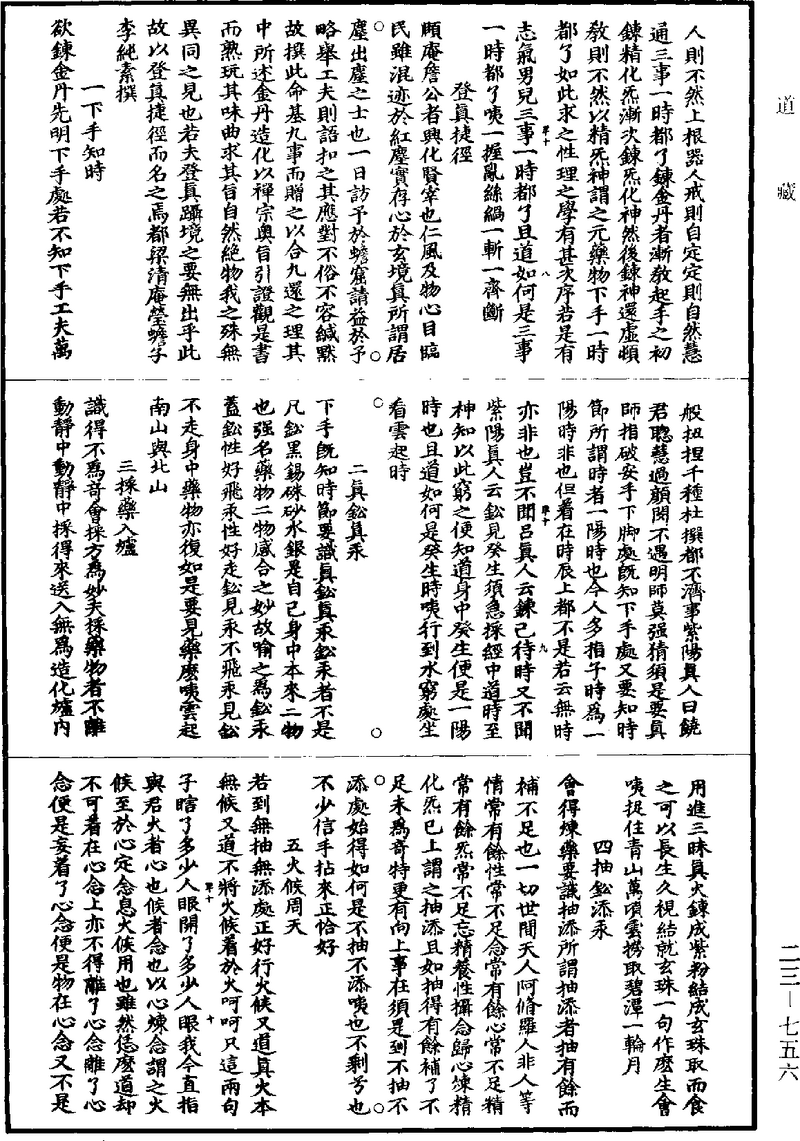 道藏
人則不然上根器人戒則自定定則自然慧
通三事一時都了鍊金丹者漸教起手之初
鍊精化炁漸次鍊炁化神然後鍊神還虛頓
教則不然以精炁神謂之元藥物下手一時
都了如此求之性理之學有甚次序若是有
志氣男兒三事一時都了且道如何是三事
一時都了咦一握亂絲綃一斬一齊斷
登真捷徑
頤庵詹公者興化賢宰也仁風及物心目臨
民雖混迹於紅塵實存心於玄境真所謂居
塵出塵之士也一日訪予於蟾窟請益於予
略舉工夫則語扣之其應對不俗不容緘默
故撰此命基九事而贈之以合九還之理其
中所述金丹造化以禪宗奧旨引證觀是書
而熟玩其味曲求其旨自然絶物我之殊無
異同之見也若夫登真躡境之要無出乎此
故以登真捷徑而名之焉都梁清庵瑩蟾子
李純素撰
一下手知時
欲鍊金丹先明下手處若不知下手工夫萬
般扭捏千種杜撰都不濟事紫陽真人曰饒
君聰慧過顔閔不遇明師莫强猜須是要真
師指破安手下脚處旣知下手處又要知時
節所謂時者一陽時也今人多指子時為一
陽時非也但着在時辰上都不是若云無時
亦非也豈不聞吕真人云鍊己待時又不聞
紫陽真人云鈆見癸生須急採經中道時至
神知以此窮之便知道身中癸生便是一陽
時也且道如何是癸生時咦行到水窮處坐
看雲起時
二真鈆真汞
下手旣知時節要識真鈆真汞鈆汞者不是
凡鈆黑錫硃砂水銀是自己身中本來二物
也强名藥物二物感合之妙故喻之為鈆汞
蓋鈆性好飛汞性好走鈆見汞不飛汞見鈆
不走身中藥物亦復如是要見藥麽咦雲起
南山與北山
三採藥入爐
識得不為奇會採方為妙夫採藥物者不離
動靜中動靜中採得來送入無為造化爐內
用進三昧真火鍊成紫粉結成玄珠取而食
之可以長生久視結就玄珠一句作麽生會
咦捉住青山萬頃雲撈取碧潭一輪月
四抽鈆添汞
會得煉藥要識抽添所謂抽添者抽有餘而
補不足也一切世間天人阿脩羅人非人等
情常有餘性常不足念常有餘心常不足精
常有餘炁常不足忘精養性攝念歸心煉精
化炁已上謂之抽添且如抽得有餘補了不
足未為奇特更有向上事在須是到不抽不
添處始得如何是不抽不添咦也不剩兮也
不少信手拈來正恰好
五火候周天
若到無抽無添處正好行火候又道真火本
無候又道不將火候着於火呵呵只這兩句
子瞎了多少人眼開了多少人眼我今直指
與君火者心也候者念也以心煉念謂之火
候至於心定念息火候用也雖然恁麽道却
不可着在心念上亦不得離了心念離了心
念便是妄着了心念便是物在心念又不是
二三—七五六